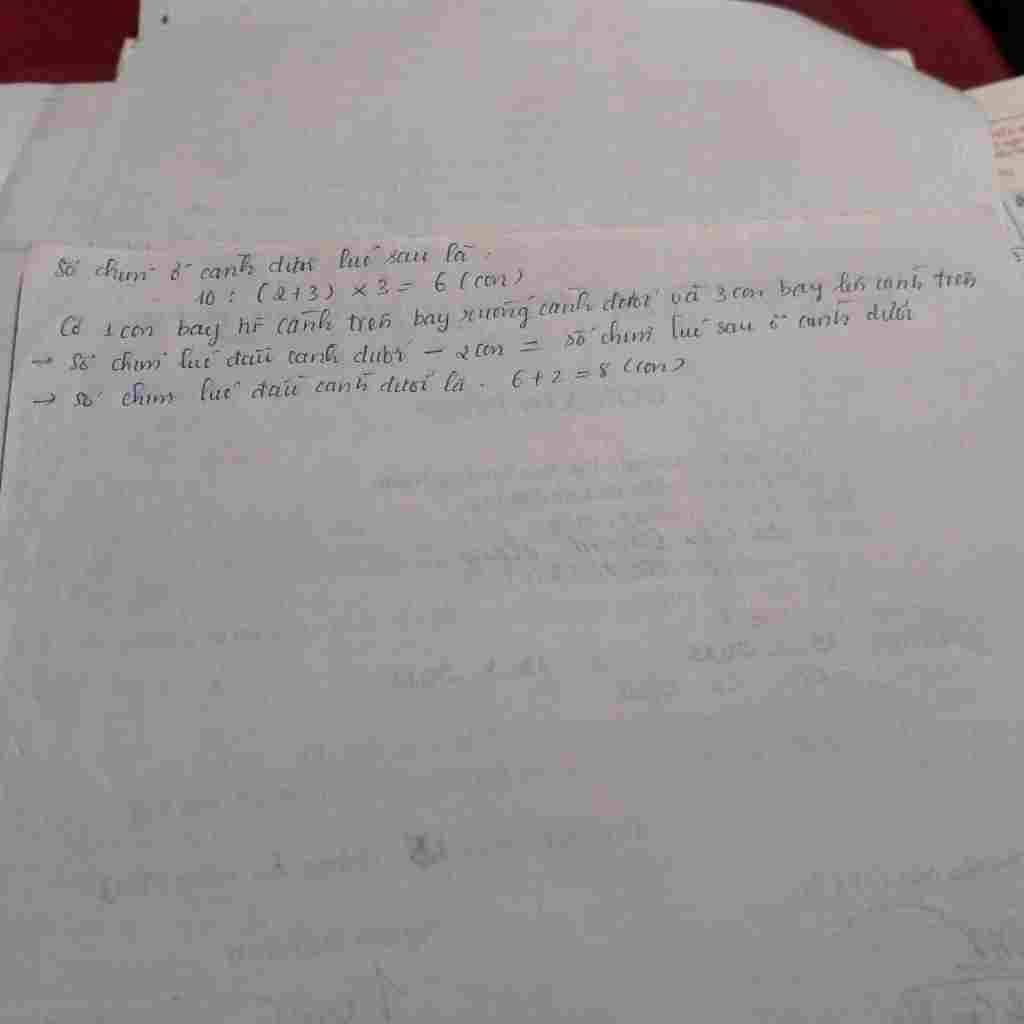 Số chim ở cành dưới lúc sau là:
10 : (2+3) × 3 = 6 (con)
Có 1 con bay từ cành trên bay xuống cành dưới và 3 con bay lên cành trên
→ số chim lúc đầu cành dưới - 2 con = số chim lúc sau ở cành dưới
→ số chim lúc đầu cành dưới là: 6 + 2 = 8 (con)